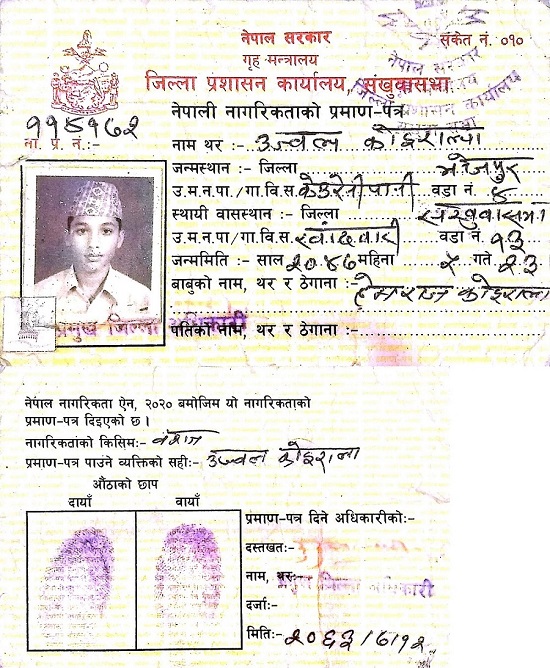 नेपाल सरकार
संकेत नं. ०१०
गृह मन्त्रालय
जिल्ला प्रशासन कार्यालय, संखुवासभा
नेपाली नागरिकताको प्रमाण-पत्र
११५१६२
ना. प्र. नं.:-
नाम थर :- उज्वल कोइराला
जन्मस्थान :- जिल्ला भोजपुर
उ.म.न.पा./गा.वि.स. केउरेनीपानी वडा नं. ४
स्थायी वासस्थान :- जिल्ला संखुवासभा
उ.म.न.पा./गा.वि.स. खाँदवारी वडा नं. १३
जन्ममिति :- साल २०४७ महिना ५ गते २३
बाबुको नाम, थर र ठेगाना :- हेमराज कोइराला
प्रमुख जिल्ला अधिकारी
पतिको नाम, थर र ठेगाना :-
नेपाल नागरिकता ऐन, २०२० बमोजिम यो नागरिकताको
प्रमाण-पत्र दिइएको छ ।
नागरिकताको किसिम:- वंशज
प्रमाण-पत्र पाउने व्यक्तिको सही:- उज्वल कोइराला
औंठाको छाप
दायाँ बायाँ
प्रमाण-पत्र दिने अधिकारीको:-
दस्तखत:-
नाम, थर:-
प्रमुख जिल्ला अधिकारी
दर्जा:-
मिति:- २०६३/६/१२